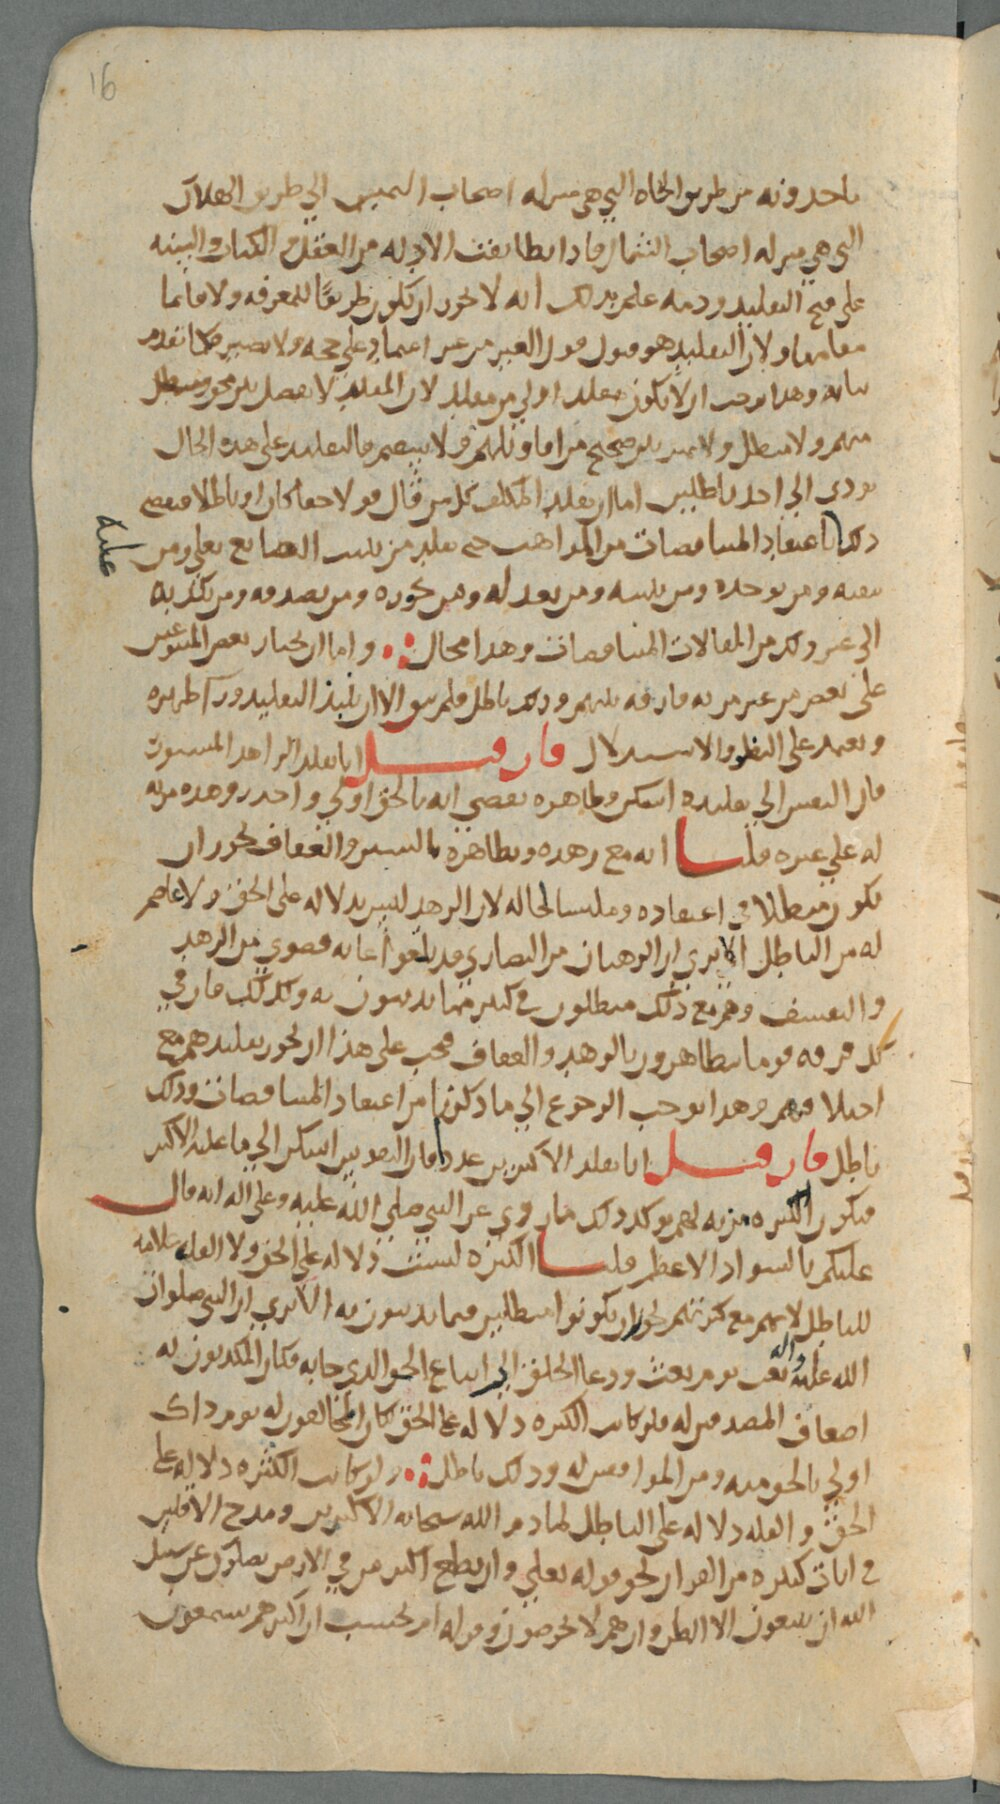 16
ياخذونه من طريق النجاة التي هي منزلة اصحاب اليمين الى طريق الهلاك
التي هي منزلة اصحاب الشمال فاذا تطابقت الادلة من العقل والكتاب والسنة
على قبح التقليد وذمه علم بذلك انه لا يجوز ان يكون طريقا للمعرفة ولا قائما
مقامها ولان التقليد هو قبول قول الغير من غير اعتماد على حجة ولا بصيرة كما تقدم
بيانه وهذا يوجب ان لا يكون مقلد اولى من مقلد لان المقلد لا يفصل بين محق
منهم ولا مبطل ولا يميز بين صحيح من اقاويلهم ولا سقيم فالتقليد على هذه الحال
يودي الى احد باطلين اما ان يقلد المكلف كل من قال قولا حقا كان او باطلا
ذلك الى اعتقاد المتناقضات من المذاهب حتى يقلد من يثبت الصانع تعلى ومن
عليه
ينفيه ومن يوحده ومن يثنيه ومن يعدله ومن يجوره ومن يصدقه ومن يكذبه
الى غير ذلك من المقالات المتناقضات وهذا محال واما ان يختار بعض المتبوعين
على بعض من غير مزية فارقة بينهم وذلك باطل فلم يبق الا ان ينبذ التقليد وراء ظهره
ويعتمد على النظر والاستدلال فان قيل انا نقلد الزاهد
فان النفس الى تقليده اسكن وظاهره يقضي انه بالحق اولى واحد زهده مزية
له على غيره قلنا انه مع زهده وتظاهره بالستر والعفاف يجوز ان
يكون مبطلا في اعتقاده وملبسا لحاله لان الزهد ليس بدلالة على الحق ولا عاصم
له من الباطل الا ترى ان الرهبان من النصارى قد بلغوا غاية قصوى من الزهد
والتعسف وهم مع ذلك مبطلون في كثير مما يدينون به وكذلك فان في
كل فرقة قوما يتظاهرون بالزهد والعفاف فيجب على هذا ان يجوز تقليدهم مع
اختلافهم وهذا يوجب الرجوع الى ما ذكرنا من اعتقاد المتناقضات وذلك
باطل فان قيل انا نقلد الاكثرين عددا فان النفوس اسكن الى ما عليه الاكثر
فتكون الكثرة مزية لهم يوكد ذلك ما روي عن النبي صلى الله عليه وعلى اله انه قال
عليكم بالسواد الاعظم قلنا الكثرة ليست دلالة على الحق ولا القلة علامة
للباطل لانهم مع كثرتهم يجوز ان يكونوا مبطلين فيما يدينون به الا ترى ان النبي صلوات
الله عليه واله يوم بعث ودعا الخلق الى اتباع الحق الذي جا به فكان المكذبون له
اضعاف المصدقين له فلو كانت الكثرة دلالة على الحق لكان المخالفون له يوم ذاك
اولى بالحق منه ومن الموافقين له وذلك باطل ولو كانت الكثرة دلالة على
الحق والقلة دلالة على الباطل لما ذم الله سبحانه الاكثرين ومدح الاقلين
في ايات كثيرة من القران نحو قوله تعلى وان تطع اكثر من في الارض يضلوك عن سبيل
الله ان يتبعون الا الظن وان هم الا يخرصون وقوله ام تحسب ان اكثرهم يسمعون